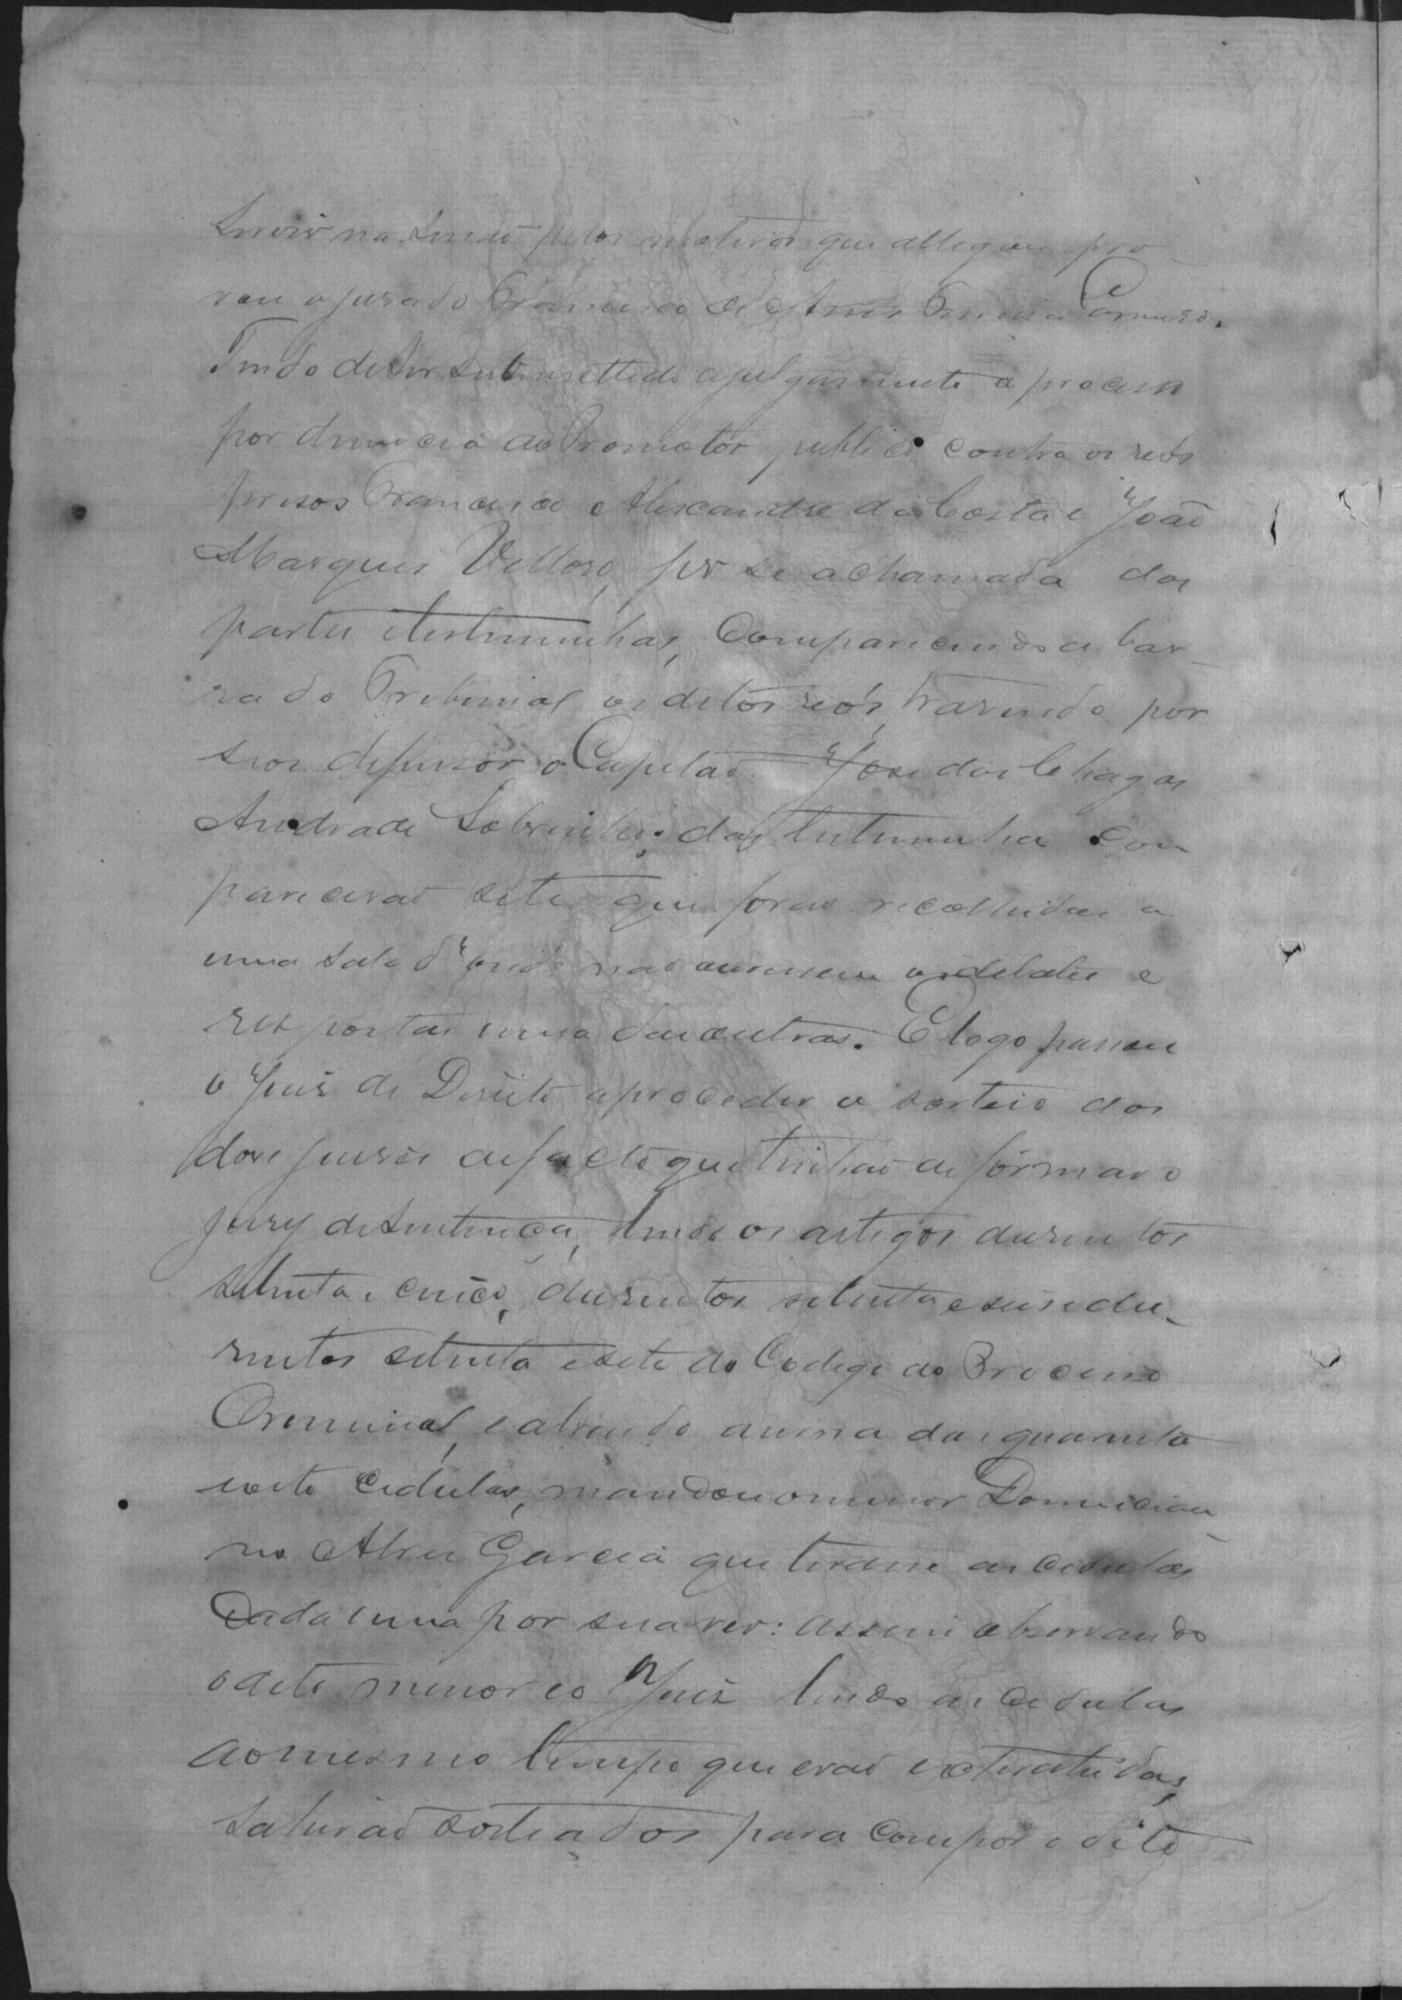 servir na sessão pelos motivos que allegou e pro-
vou o jurado Francisco de Assis Camurso.
Tendo de ser submettido a julgamento o processo
por denuncia do Promotor publico contra os reos
presos Francisco Alexandre da Costa e João
Marques Velloso, fes se a chamada das
partes e testemunhas, comparecendo a bar-
ra do Tribunal os ditos reos, trazendo por
seor defensor o Capitão José das Chagas
Andrade Sobrinho; das testemunha com
parecerão sete que forão recolhidas a
uma sala d'onde não ouvissem os debates e
respostas uma das outras. E logo passou
o Juis de Direito a proceder o sorteio dos
dose juises de facto que tinhão de formar o
jury de sentença, lendo os artigos dusentos
setenta e cinco, dusentos setenta e seis e du-
sentos setenta e sete do Codigo do Processo
Criminal, e abrindo a urna das quarenta
e oito cedulas, mandou o menor Domicia-
no Alves Garcia que tirasse as cedulas
cada uma por sua ves: assim observando
o dito menor e o Juis lendo as cedulas
ao mesmo tempo que erão extrahidas,
sahirão sorteados para compor o dito